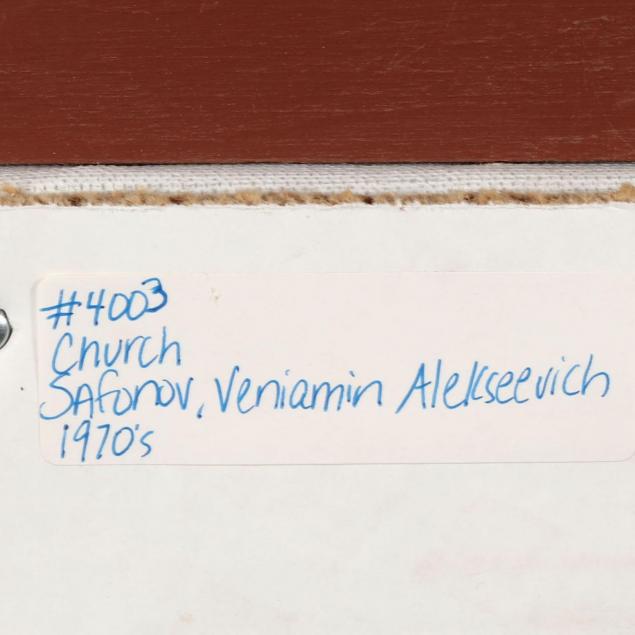 #4003
Church
Safonov, Veniamin Alekseevich
1970's